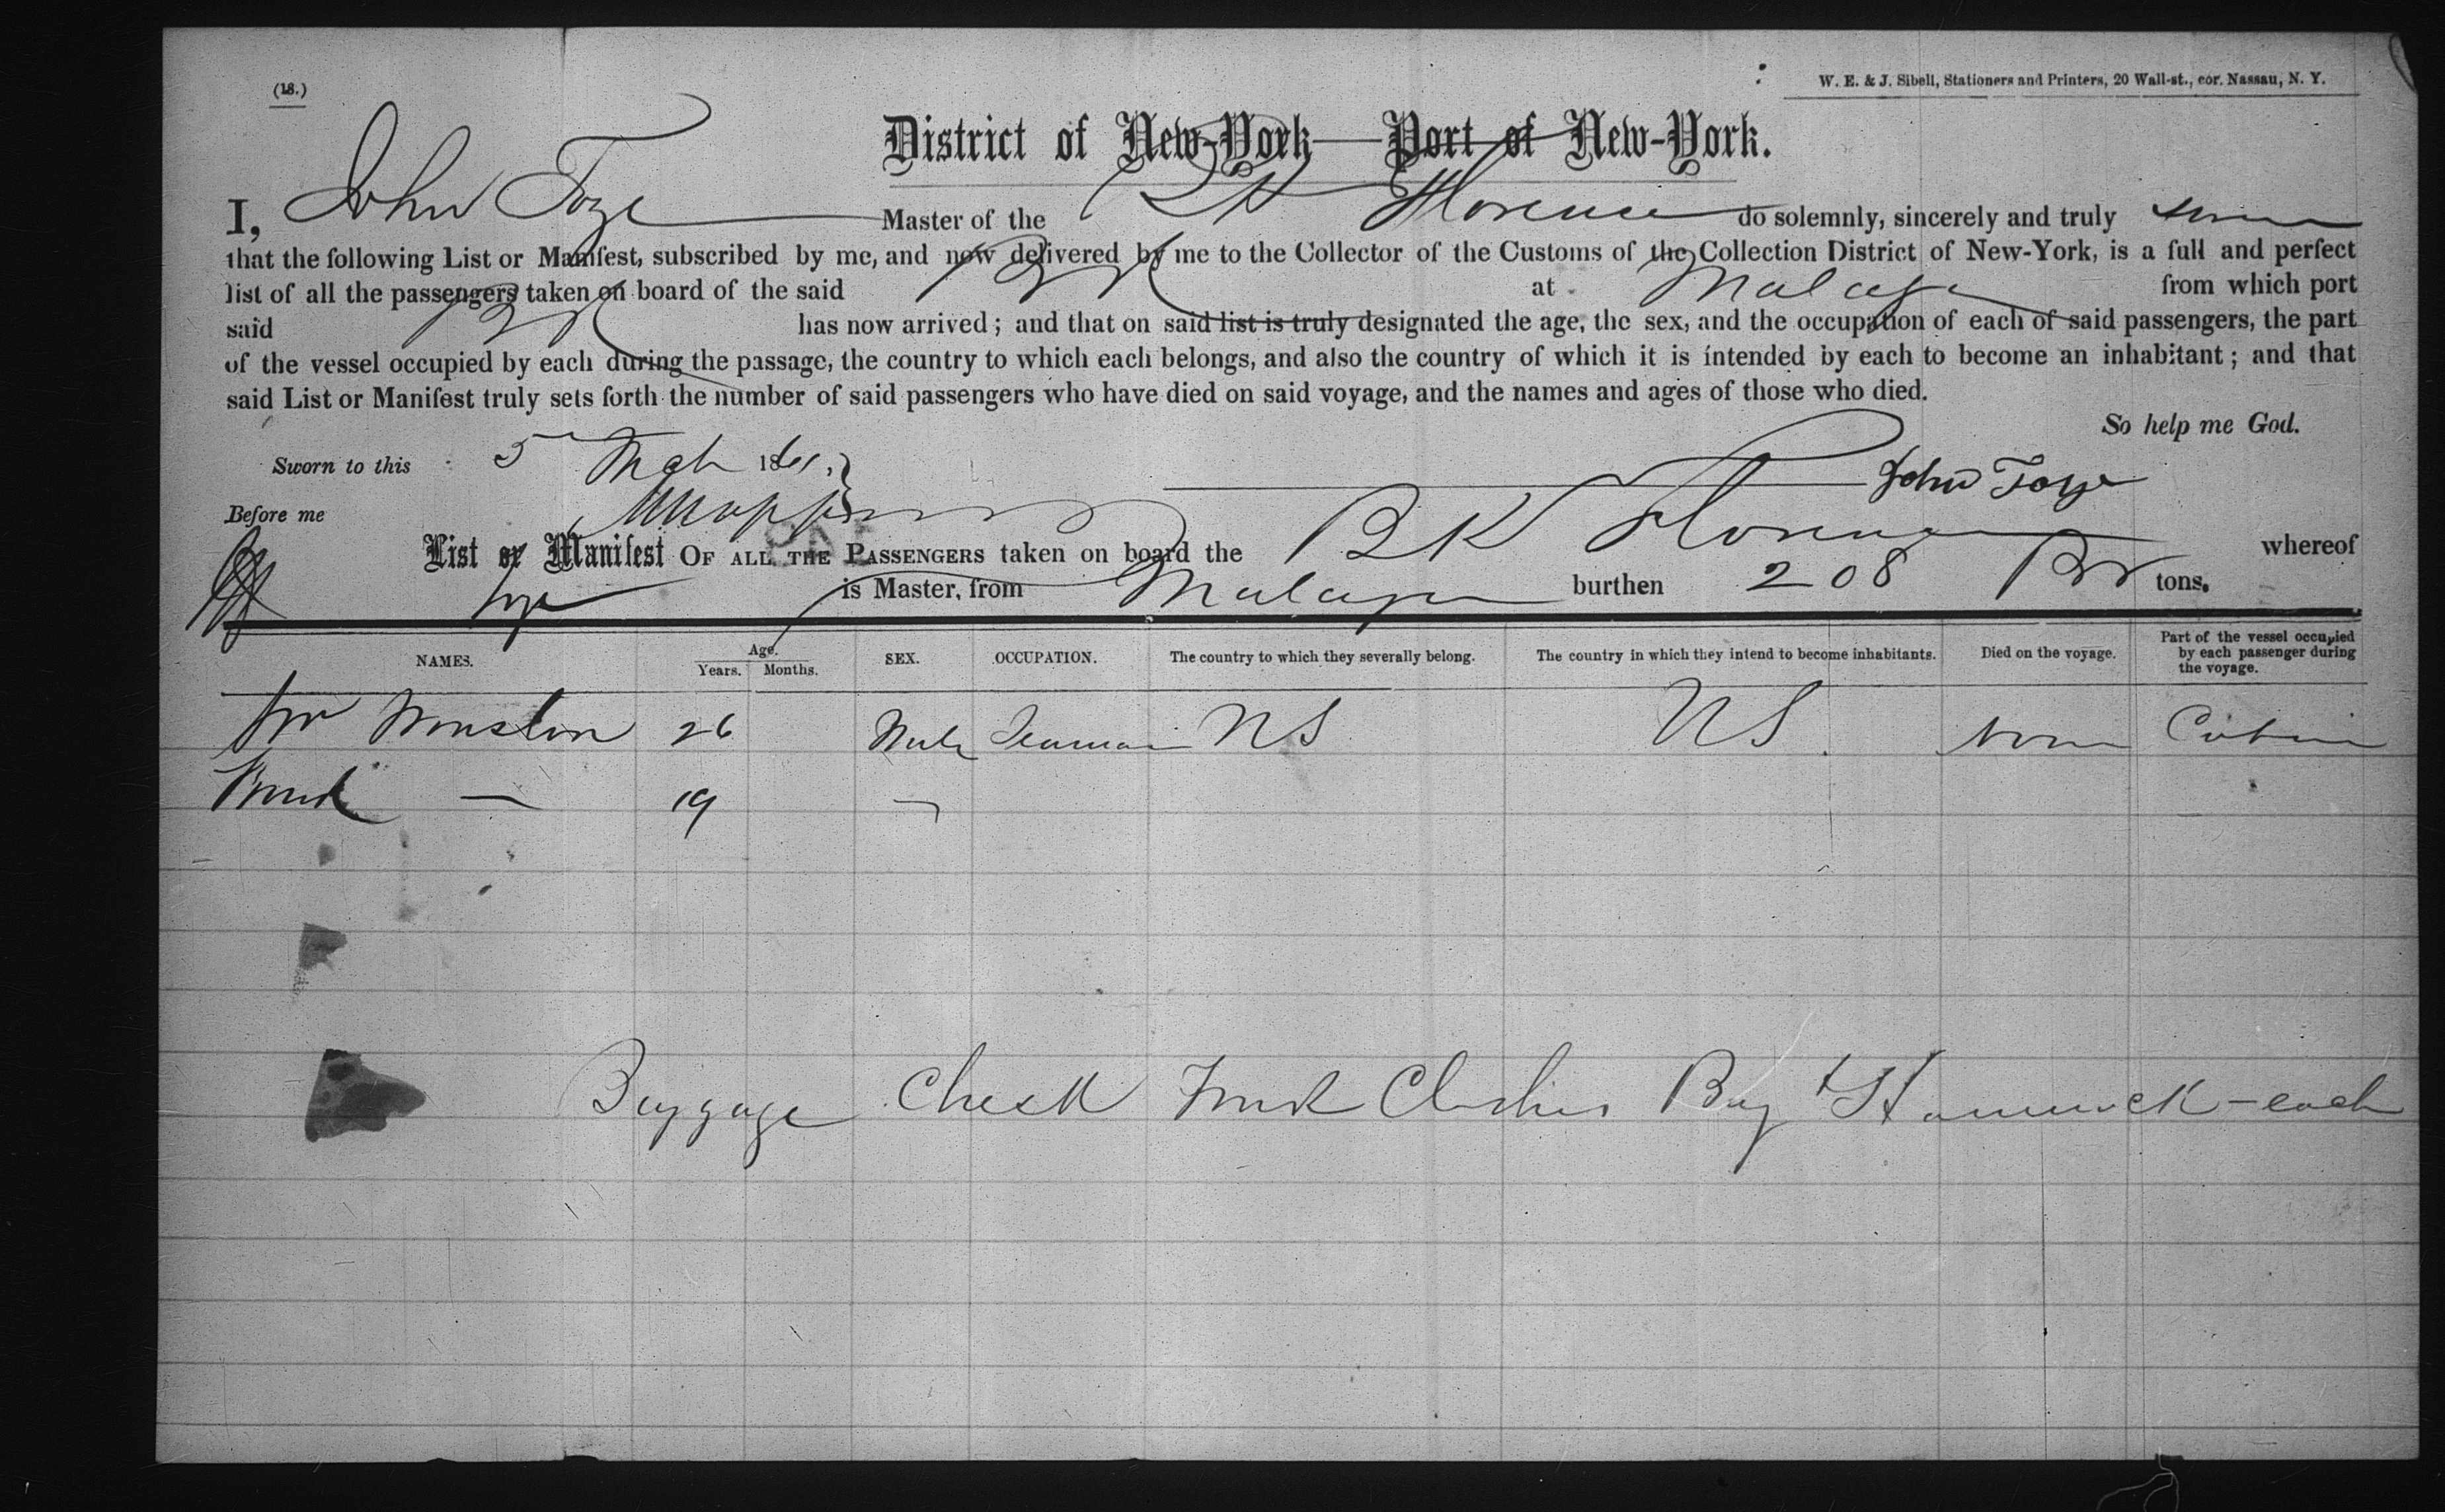 (18.)
W. E. & J. Sibell, Stationers and Printers, 20 Wall-st., cor. Nassau, N. Y.
District of New-York—Port of New-York.
I, John Foze Master of the BK Florence do solemnly, sincerely and truly
that the following List or Manifest, subscribed by me, and now delivered by me to the Collector of the Customs of the Collection District of New-York, is a full and perfect
list of all the passengers taken on board of the said BK at Malaga from which port
said BK has now arrived; and that on said list is truly designated the age, the sex, and the occupation of each of said passengers, the part
of the vessel occupied by each during the passage, the country to which each belongs, and also the country of which it is intended by each to become an inhabitant; and that
said List or Manifest truly sets forth the number of said passengers who have died on said voyage, and the names and ages of those who died.
So help me God.
Sworn to this 5 Mch 1861,
John Foze
Before me
List or Manifest OF ALL THE PASSENGERS taken on board the BK Florence whereof
Foze is Master, from Malaga burthen 208 tons.
NAMES. Age. Years. Months. SEX. OCCUPATION. The country to which they severally belong. The country in which they intend to become inhabitants. Died on the voyage. Part of the vessel occupied by each passenger during the voyage.
26 Male Seaman US US None Cabin
19
Baggage Chest Clothes Bag + Hammock - each